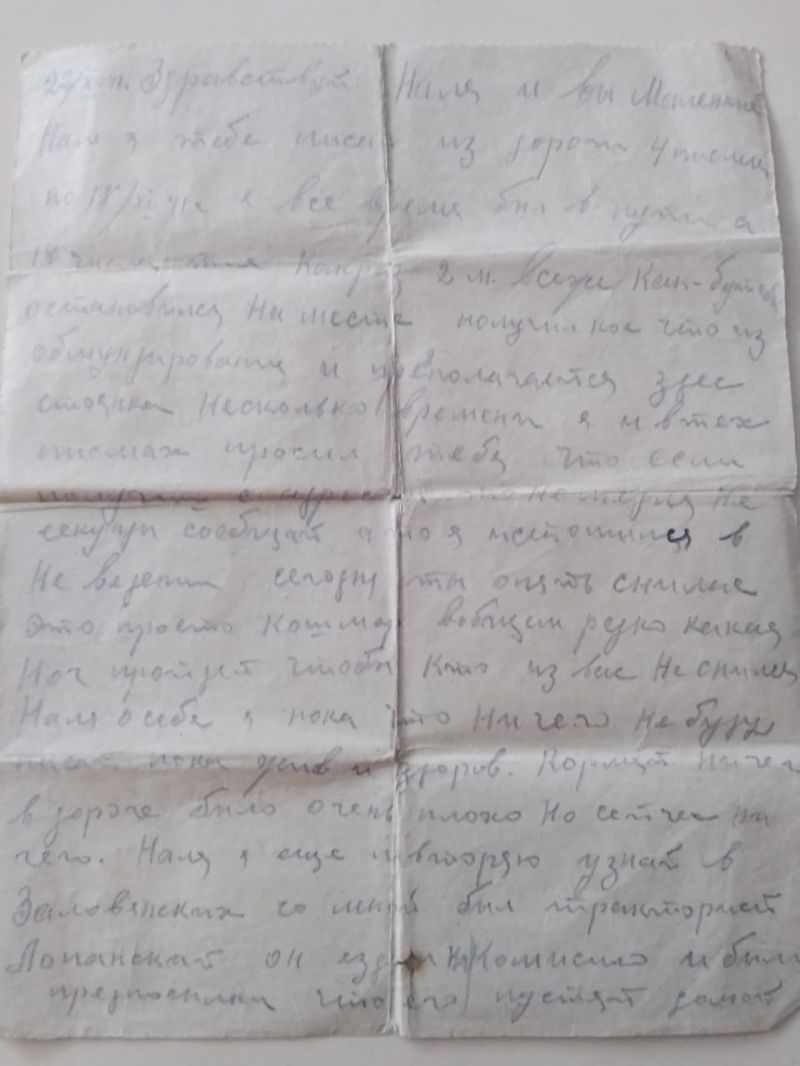 22/XI 41 Здравствуй Наля и вы Маленкие
Наля я тебе писал из дороги 4 писма
по 18/XI 41г я все время был в пути а
18 числа Какраз 2 м. всеже Как-бутто
остановился На месте получил кое что из
обмундирования и предполагается здес
стоянка Несколько времени я и в тех
писмах просил тебя что если
получиш не
секунды сообщай а то я истомился в
Не ведении, сегодня ты опять снилас
Это просто Кошмар вобщем редко какая
Ноч пройдет чтобы Кто из вас Не снился
Наля о себе я пока что Ничего Не буду
писат пока жив и здоров. Кормят ничего
в дороге было очень плохо Но сейчас ни
чего. Наля я еще повторяю узнай в
Заловенских со мной был тракторист
Лопанский он ездил На Комисию и были
предпосилки что его пустят домой